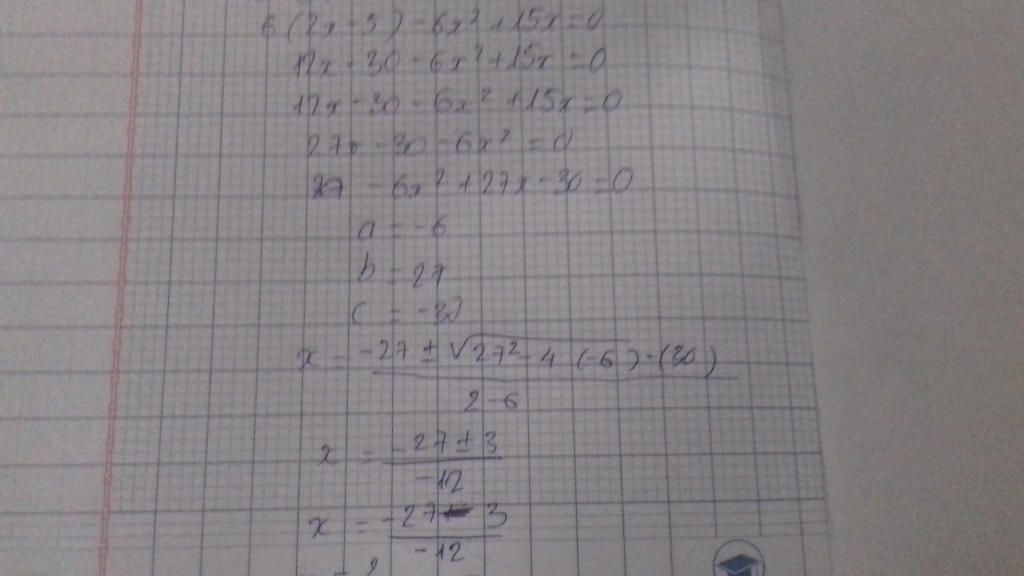 6(2x-5)-6x²+15x=0
12x-30-6x²+15x=0
12x-30-6x²+15x=0
27x-30-6x²=0
-6x²+27x-30=0
a=-6
b=27
c=-30
x=-27±√27²-4(-6)-(30)
2-6
x=-27±3
-12
x=-27 3
-12